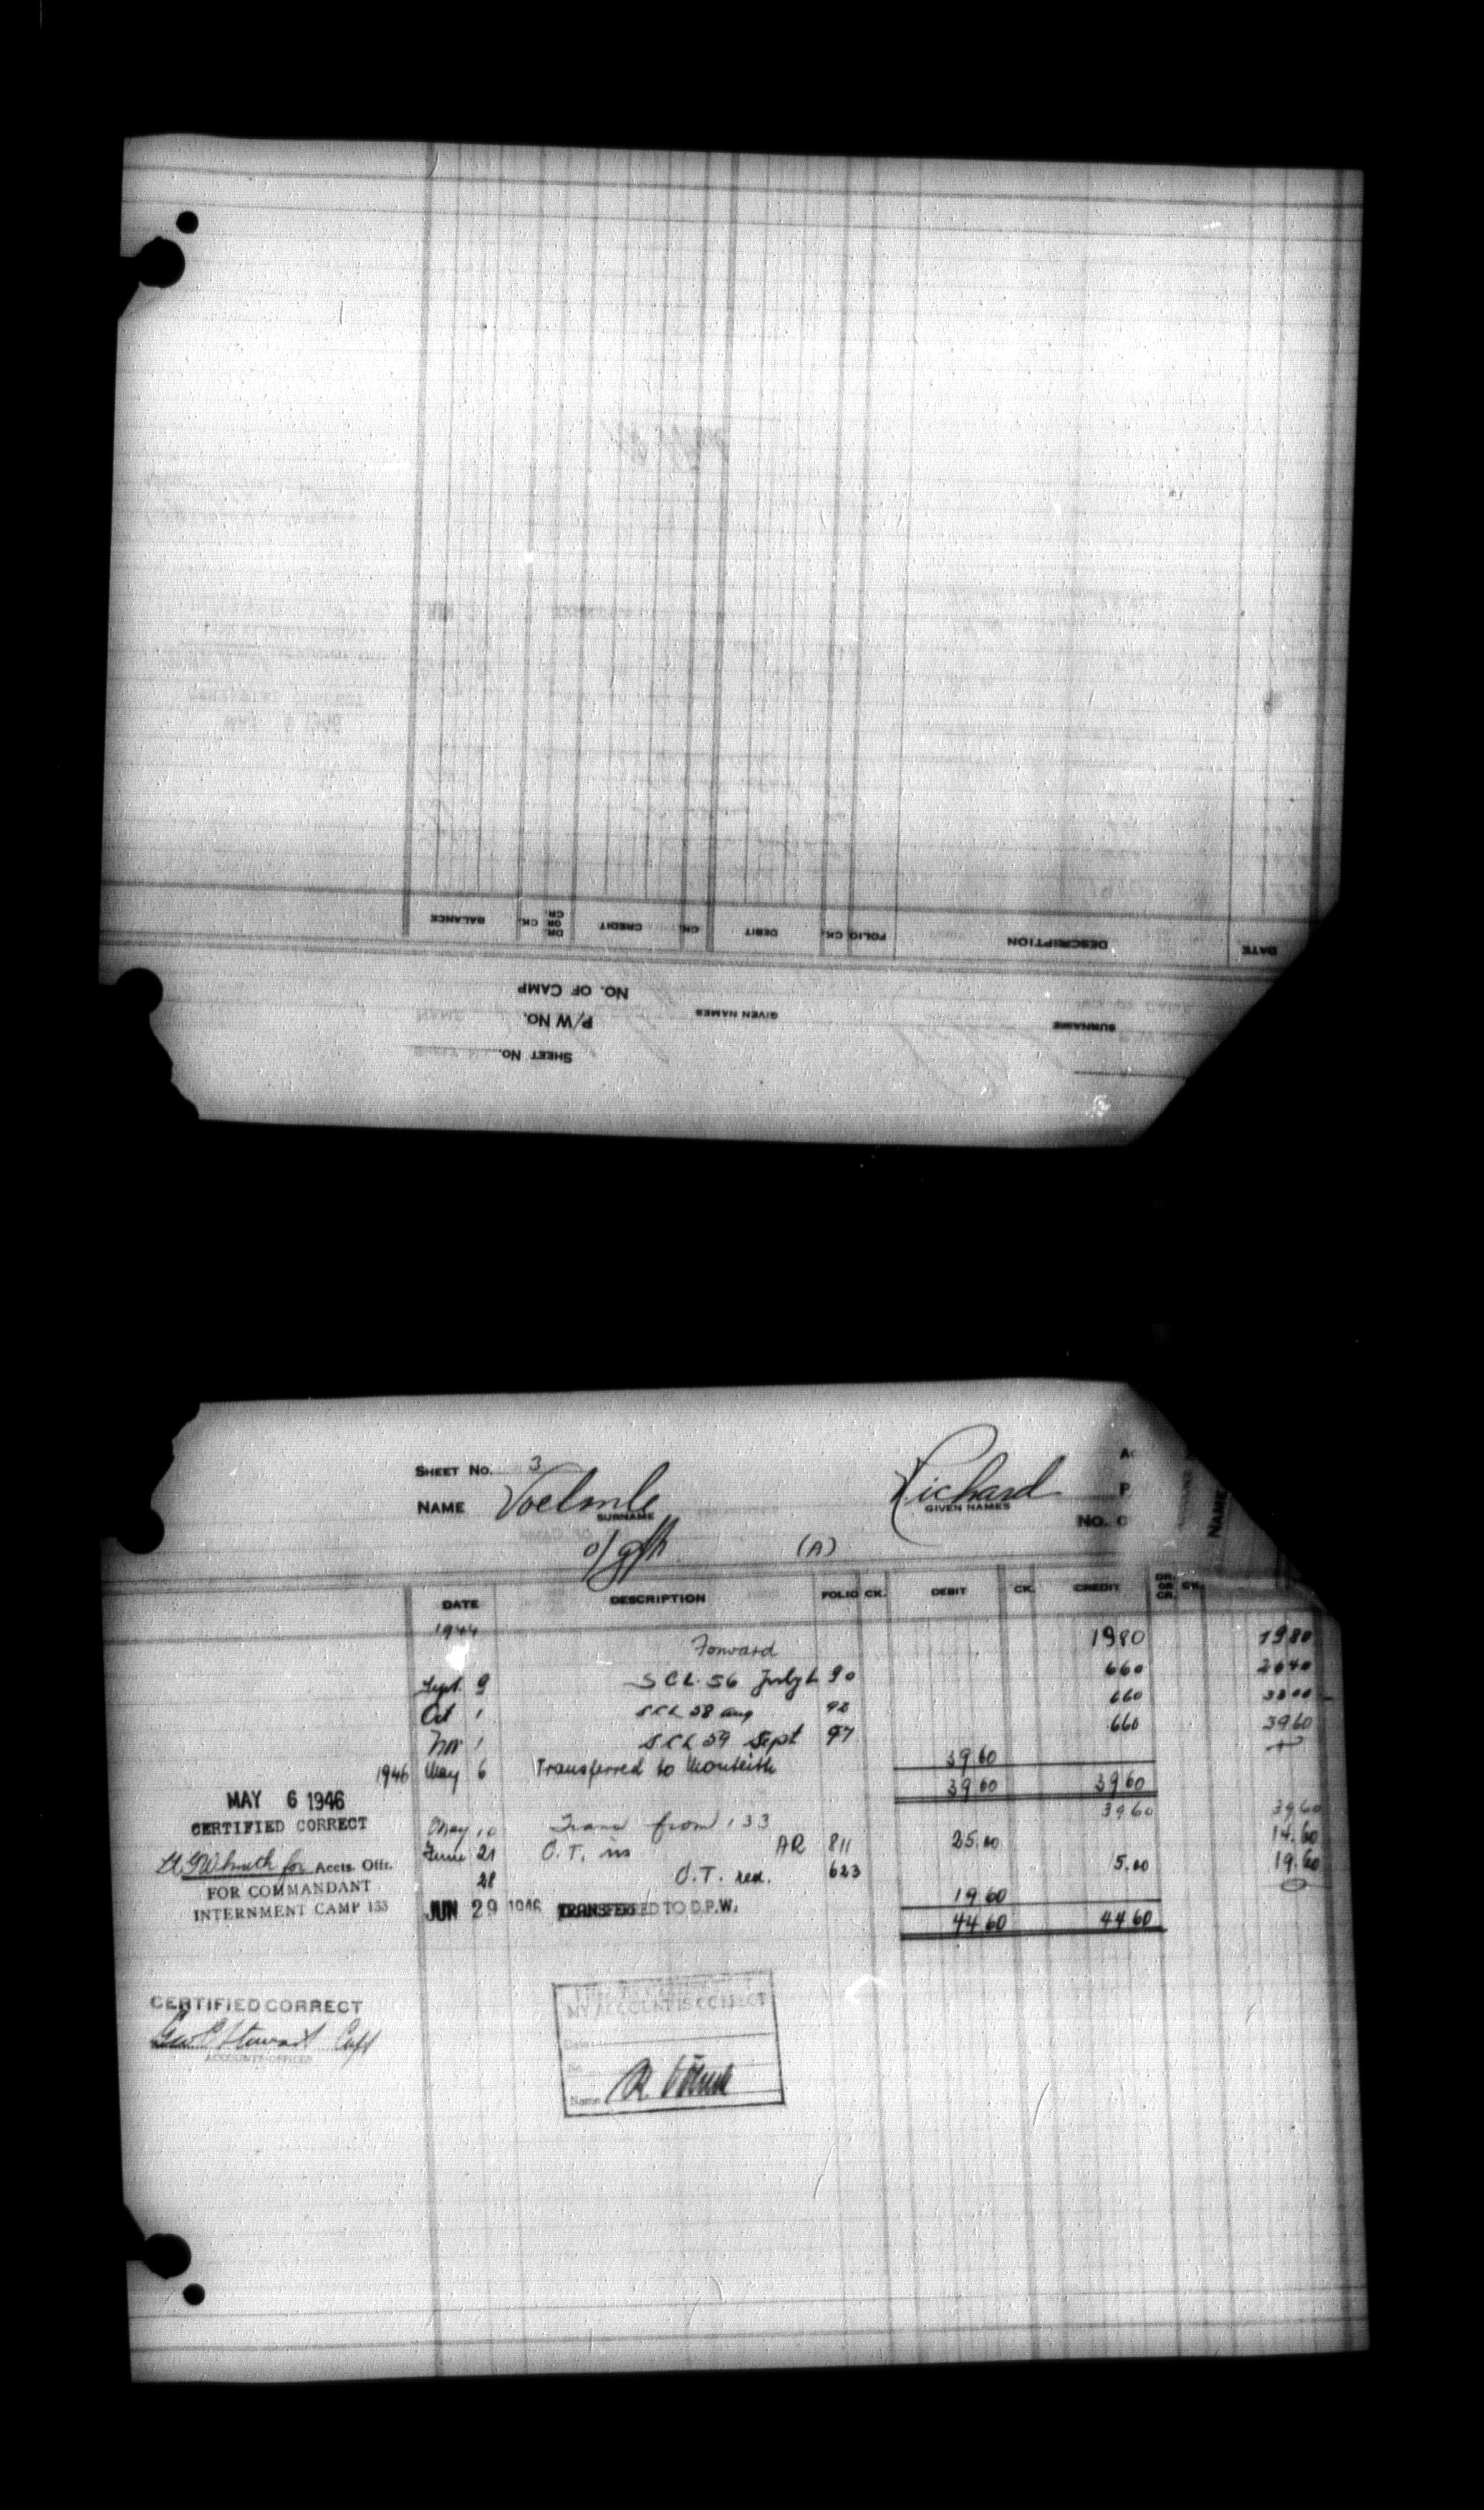 BALANCE CK. DR. OR CR. CREDIT CK. DEBIT CK. FOLIO DESCRIPTION DATE
NO. OF CAMP
P/W NO. GIVEN NAMES SURNAME
SHEET NO.
SHEET NO. 3
NAME Voelmle Richard
SURNAME GIVEN NAMES
NO.
(A)
DATE DESCRIPTION FOLIO CK. DEBIT CK. CREDIT DR. OR CR. CK.
NAME
1944
Forward 1980 1980
Sept. 9 SCL 56 90 660 2640
Oct 1 SCL 58 Aug 92 660 3300
Nov 1 SCL 59 Sept 97 660 3960
1946 May 6 Transferred to Monteith 39.60
39.60 39.60
MAY 6 1946
CERTIFIED CORRECT
for Accts. Offr.
FOR COMMANDANT
INTERNMENT CAMP 133
May 10 Trans from 133 3960 39.60
June 21 O.T. AR 811 25.00 14.60
28 O.T. 623 5.00 19.60
JUN 29 1946 TRANSFERRED TO D.P.W. 19.60
44.60 44.60
CERTIFIED CORRECT
Geo C Stewart Capt
ACCOUNTS OFFICER
MY ACCOUNT IS CORRECT
Date
No.
Name R.